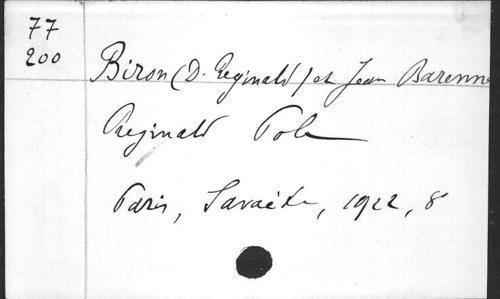 77
200
Biron (D. Reginald) et Jean Barenne
Reginald Pole
Paris, Savaète, 1922, 8°